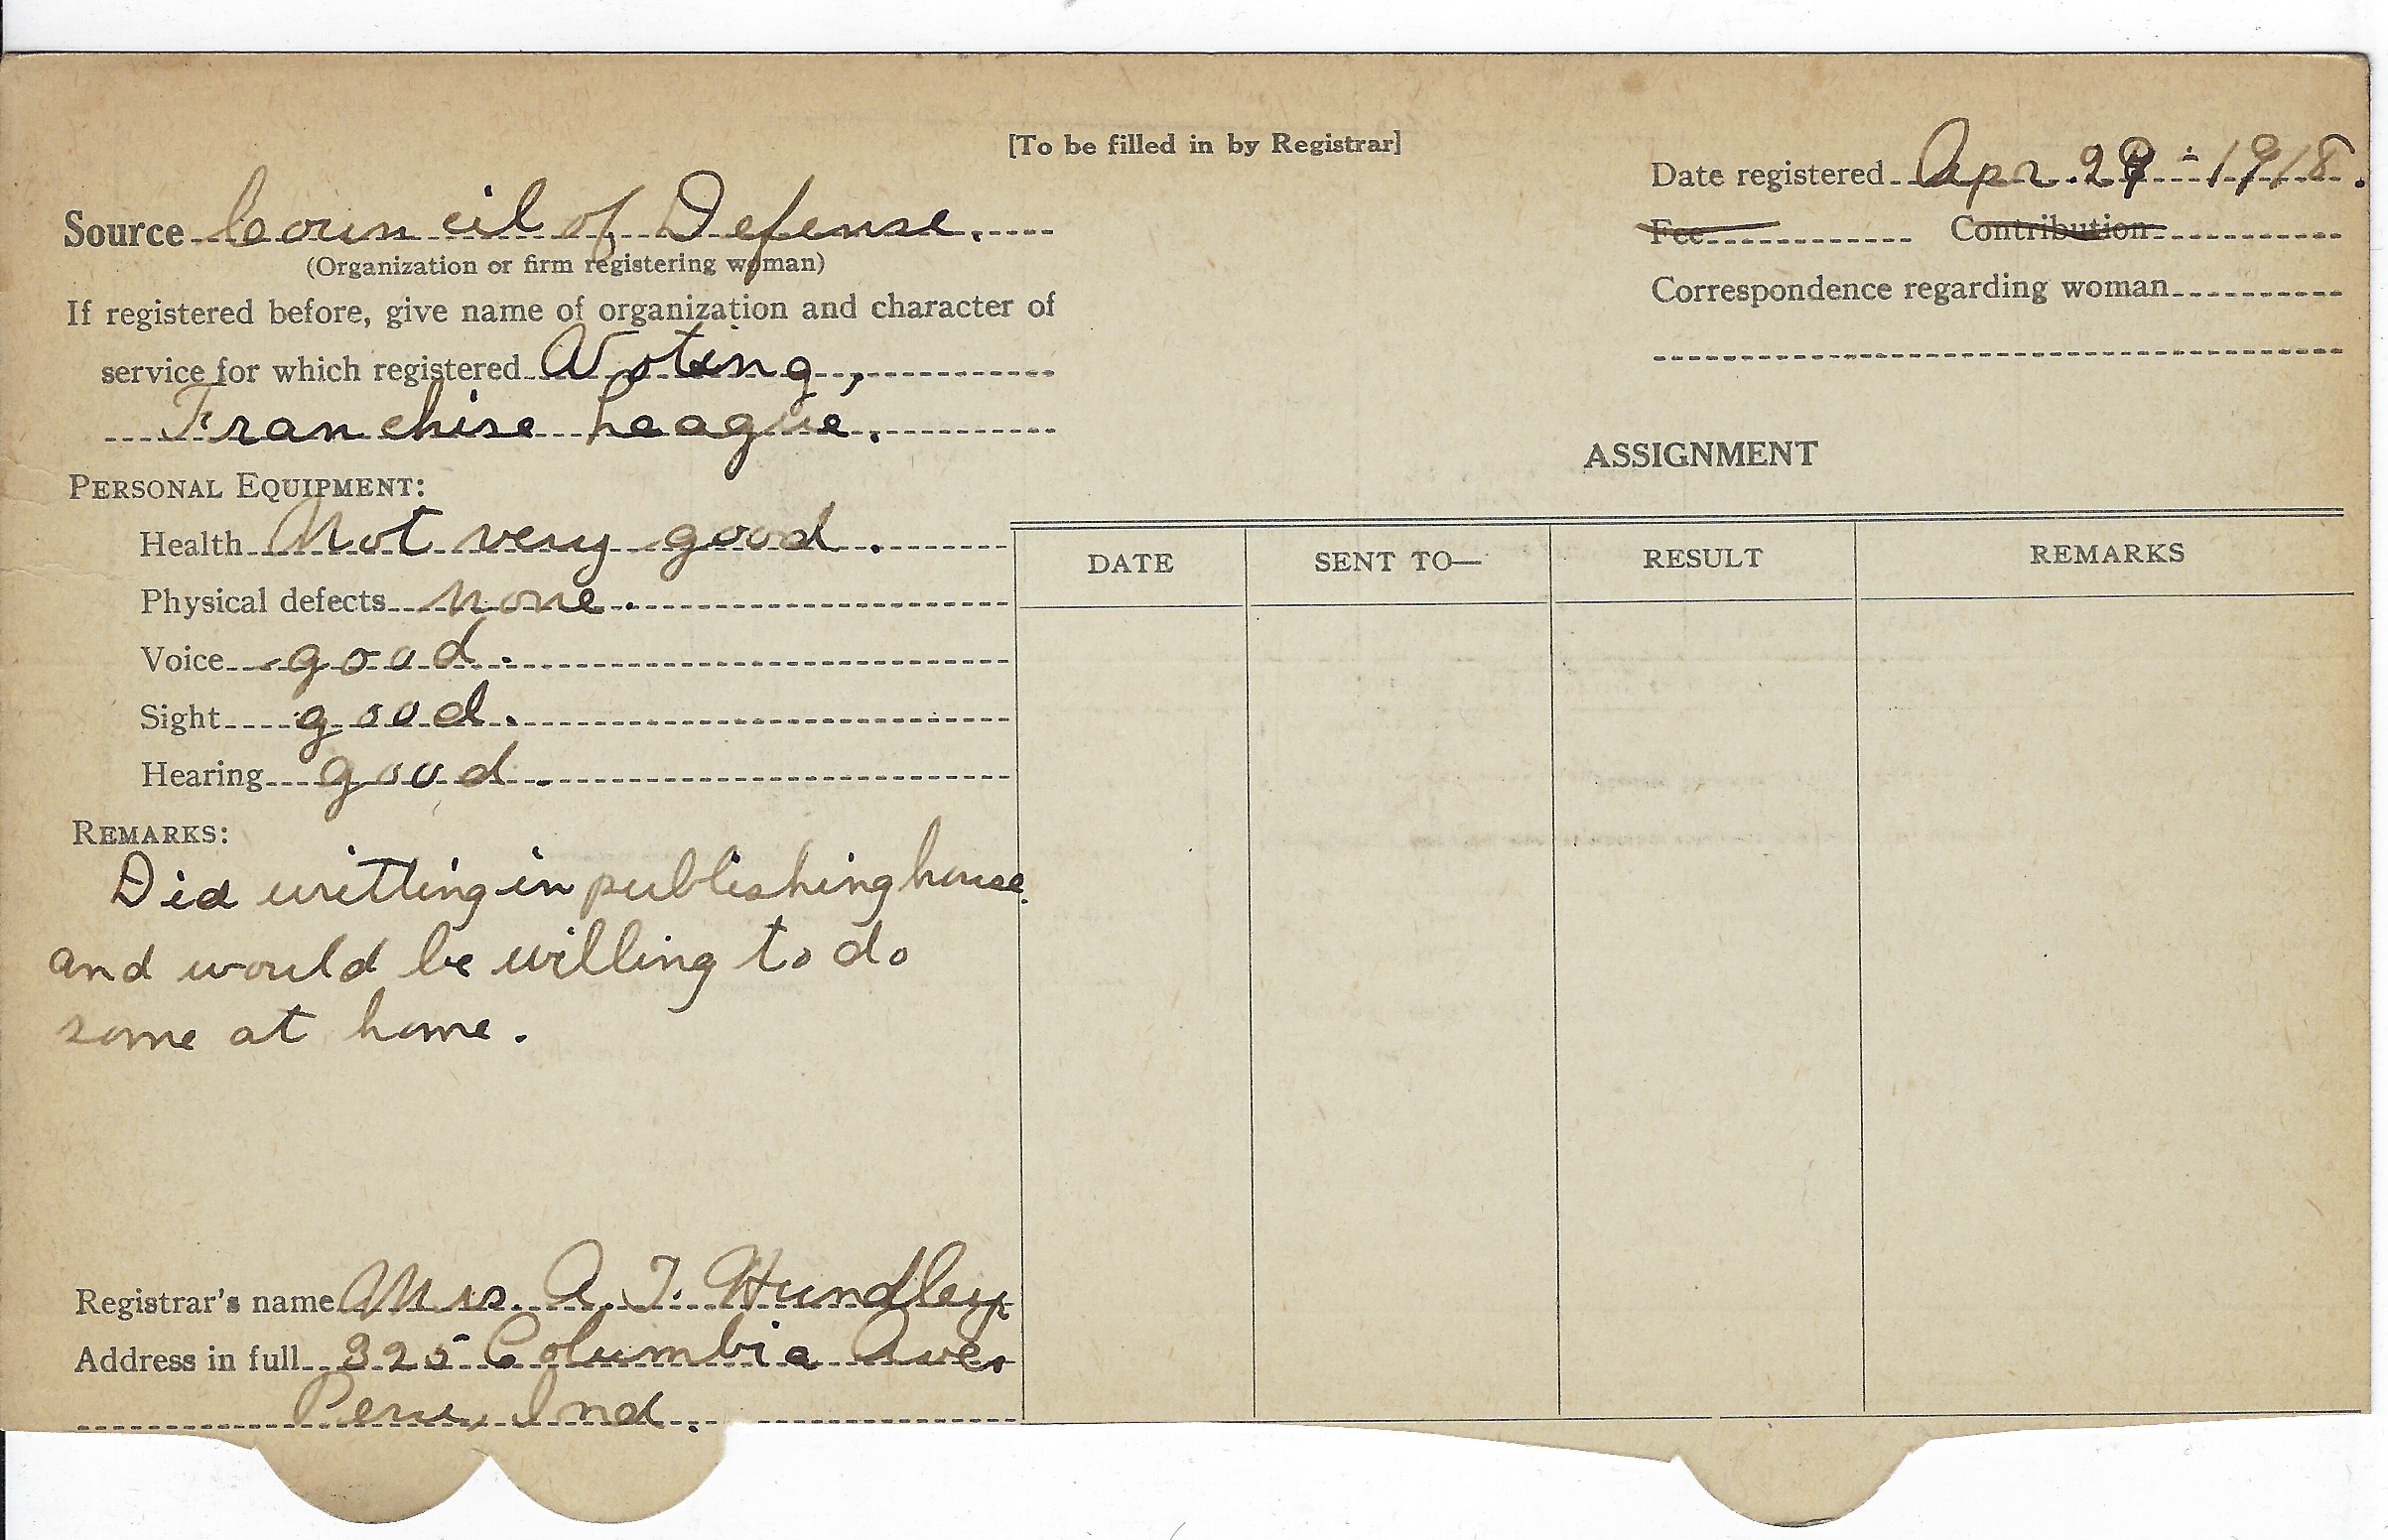 [To be filled in by Registrar]
Date registered Apr. 29 - 1918.
Source Council of Defense.
Fee Contribution
(Organization or firm registering woman)
Correspondence regarding woman
If registered before, give name of organization and character of
service for which registered Voting,
Franchise League.
ASSIGNMENT
PERSONAL EQUIPMENT:
Health Not very good.
DATE SENT TO— RESULT REMARKS
Physical defects none.
Voice good.
Sight good.
Hearing good.
REMARKS:
Did writting in publishing house.
and would be willing to do
some at home.
Registrar's name Mrs. A. T. Hundley,
Address in full 325 Columbia Ave.
Peru, Ind.